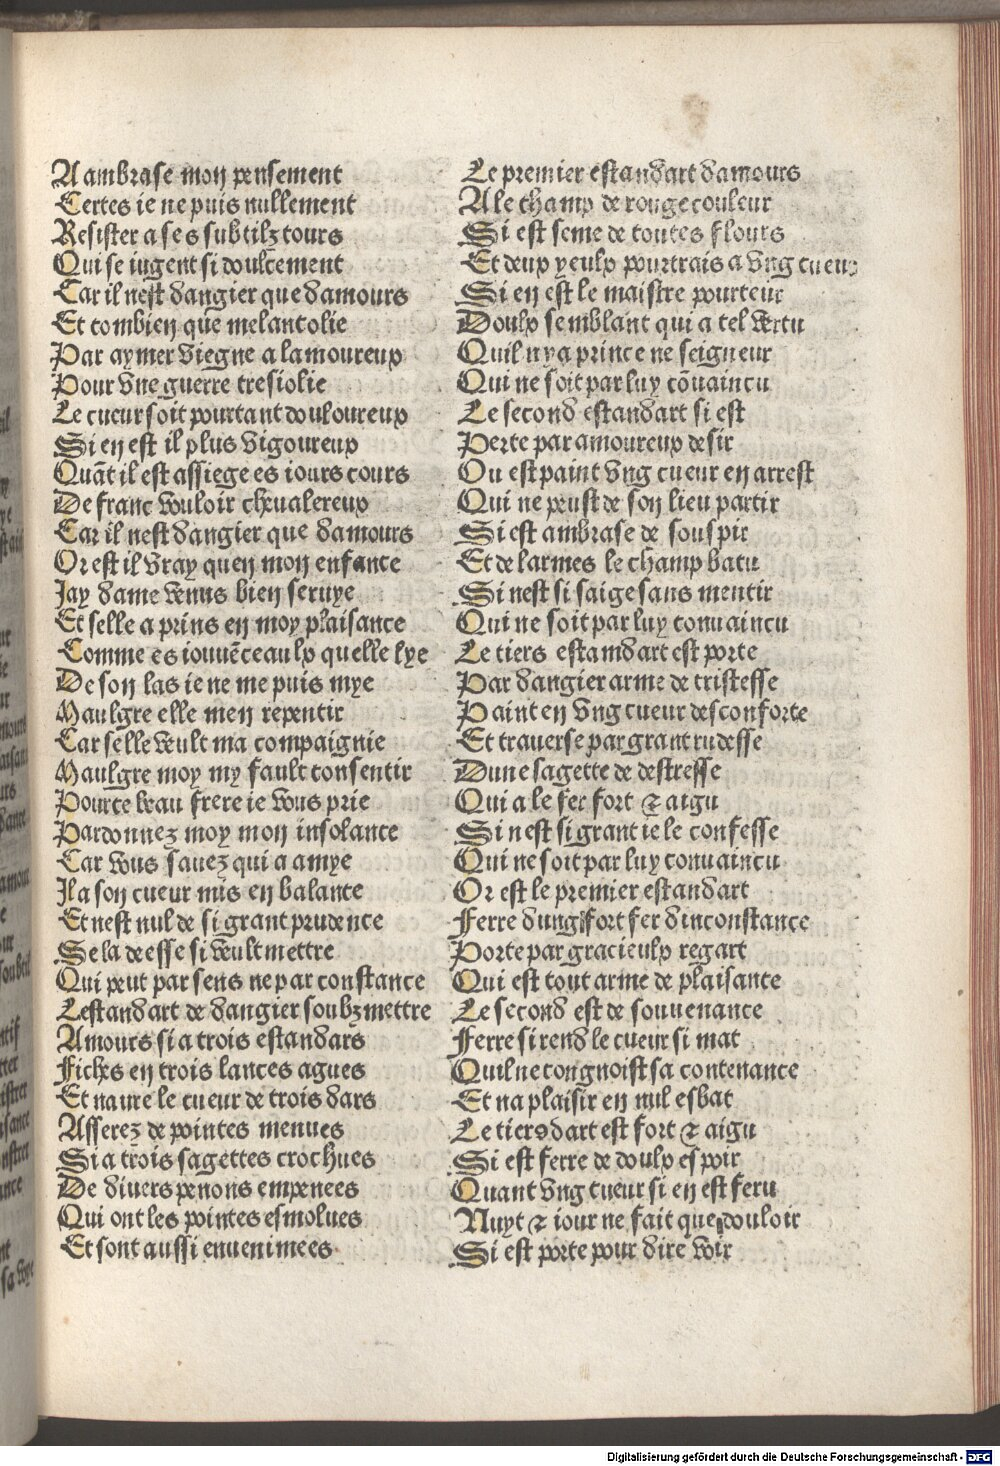 A ambrase mon pensement
Certes ie ne puis nullement
Resister a ses subtilz tours
Qui se iugent si doulcement
Car il nest dangier que damours
Et combien que melancolie
Par aymer viegne a lamoureux
Pour vne guerre tresiolie
Le cueur soit pourtant douloureux
Si en est il plus vigoureux
Quāt il est assiege es iours cours
De franc vouloir cheualereux
Car il nest dangier que damours
Or est il vray quen mon enfance
Jay dame venus bien seruye
Et selle a prins en moy plaisance
Comme es iouuēceaulx quelle lye
De son las ie ne me puis mye
Maulgre elle men repentir
Car selle veult ma compaignie
Maulgre moy my fault consentir
Pource beau frere ie vous prie
Pardonnez moy mon insolance
Car vous sauez qui a amye
Il a son cueur mis en balance
Et nest nul de si grant prudence
Se la deesse si veult mettre
Qui peut par sens ne par constance
Lestandart de dangier soubzmettre
Amours si a trois estandars
Fichez en trois lances agues
Et naure le cueur de trois dars
Asserez de pointes menues
Si a trois sagettes crochues
De diuers penons empenees
Qui ont les pointes esmolues
Et sont aussi enuenimees
Le premier estandart damours
A le champ de rouge couleur
Si est seme de toutes flours
Et deux yeulx pourtrais a vng cueur
Si en est le maistre porteur
Doulx semblant qui a tel vertu
Quil ny a prince ne seigneur
Qui ne soit par luy cōuaincu
Le second estandart si est
Perte par amoureux desir
Ou est paint vng cueur en arrest
Qui ne peust de son lieu partir
Si est ambrase de souspir
Et de larmes le champ batu
Si nest si saige sans mentir
Qui ne soit par luy conuaincu
Le tiers estamdart est porte
Par dangier arme de tristesse
Paint en vng cueur desconforte
Et trauerse par grant rudesse
Dune sagette de destresse
Qui a le fer fort ⁊ aigu
Si nest si grant ie le confesse
Qui ne soit par luy conuaincu
Or est le premier estandart
Ferre dung fort fer dinconstance
Porte par gracieulx regart
Qui est tout arme de plaisance
Le second est de souuenance
Ferre si rend le cueur si mat
Quil ne congnoist sa contenance
Et na plaisir en nul esbat
Le tiers dart est fort ⁊ aigu
Si est ferre de doulx espoir
Quant vng cueur si en est feru
Nuyt ⁊ iour ne fait que douloir
Si est porte pour dire voir
Digitalisierung gefördert durch die Deutsche Forschungsgemeinschaft - DFG